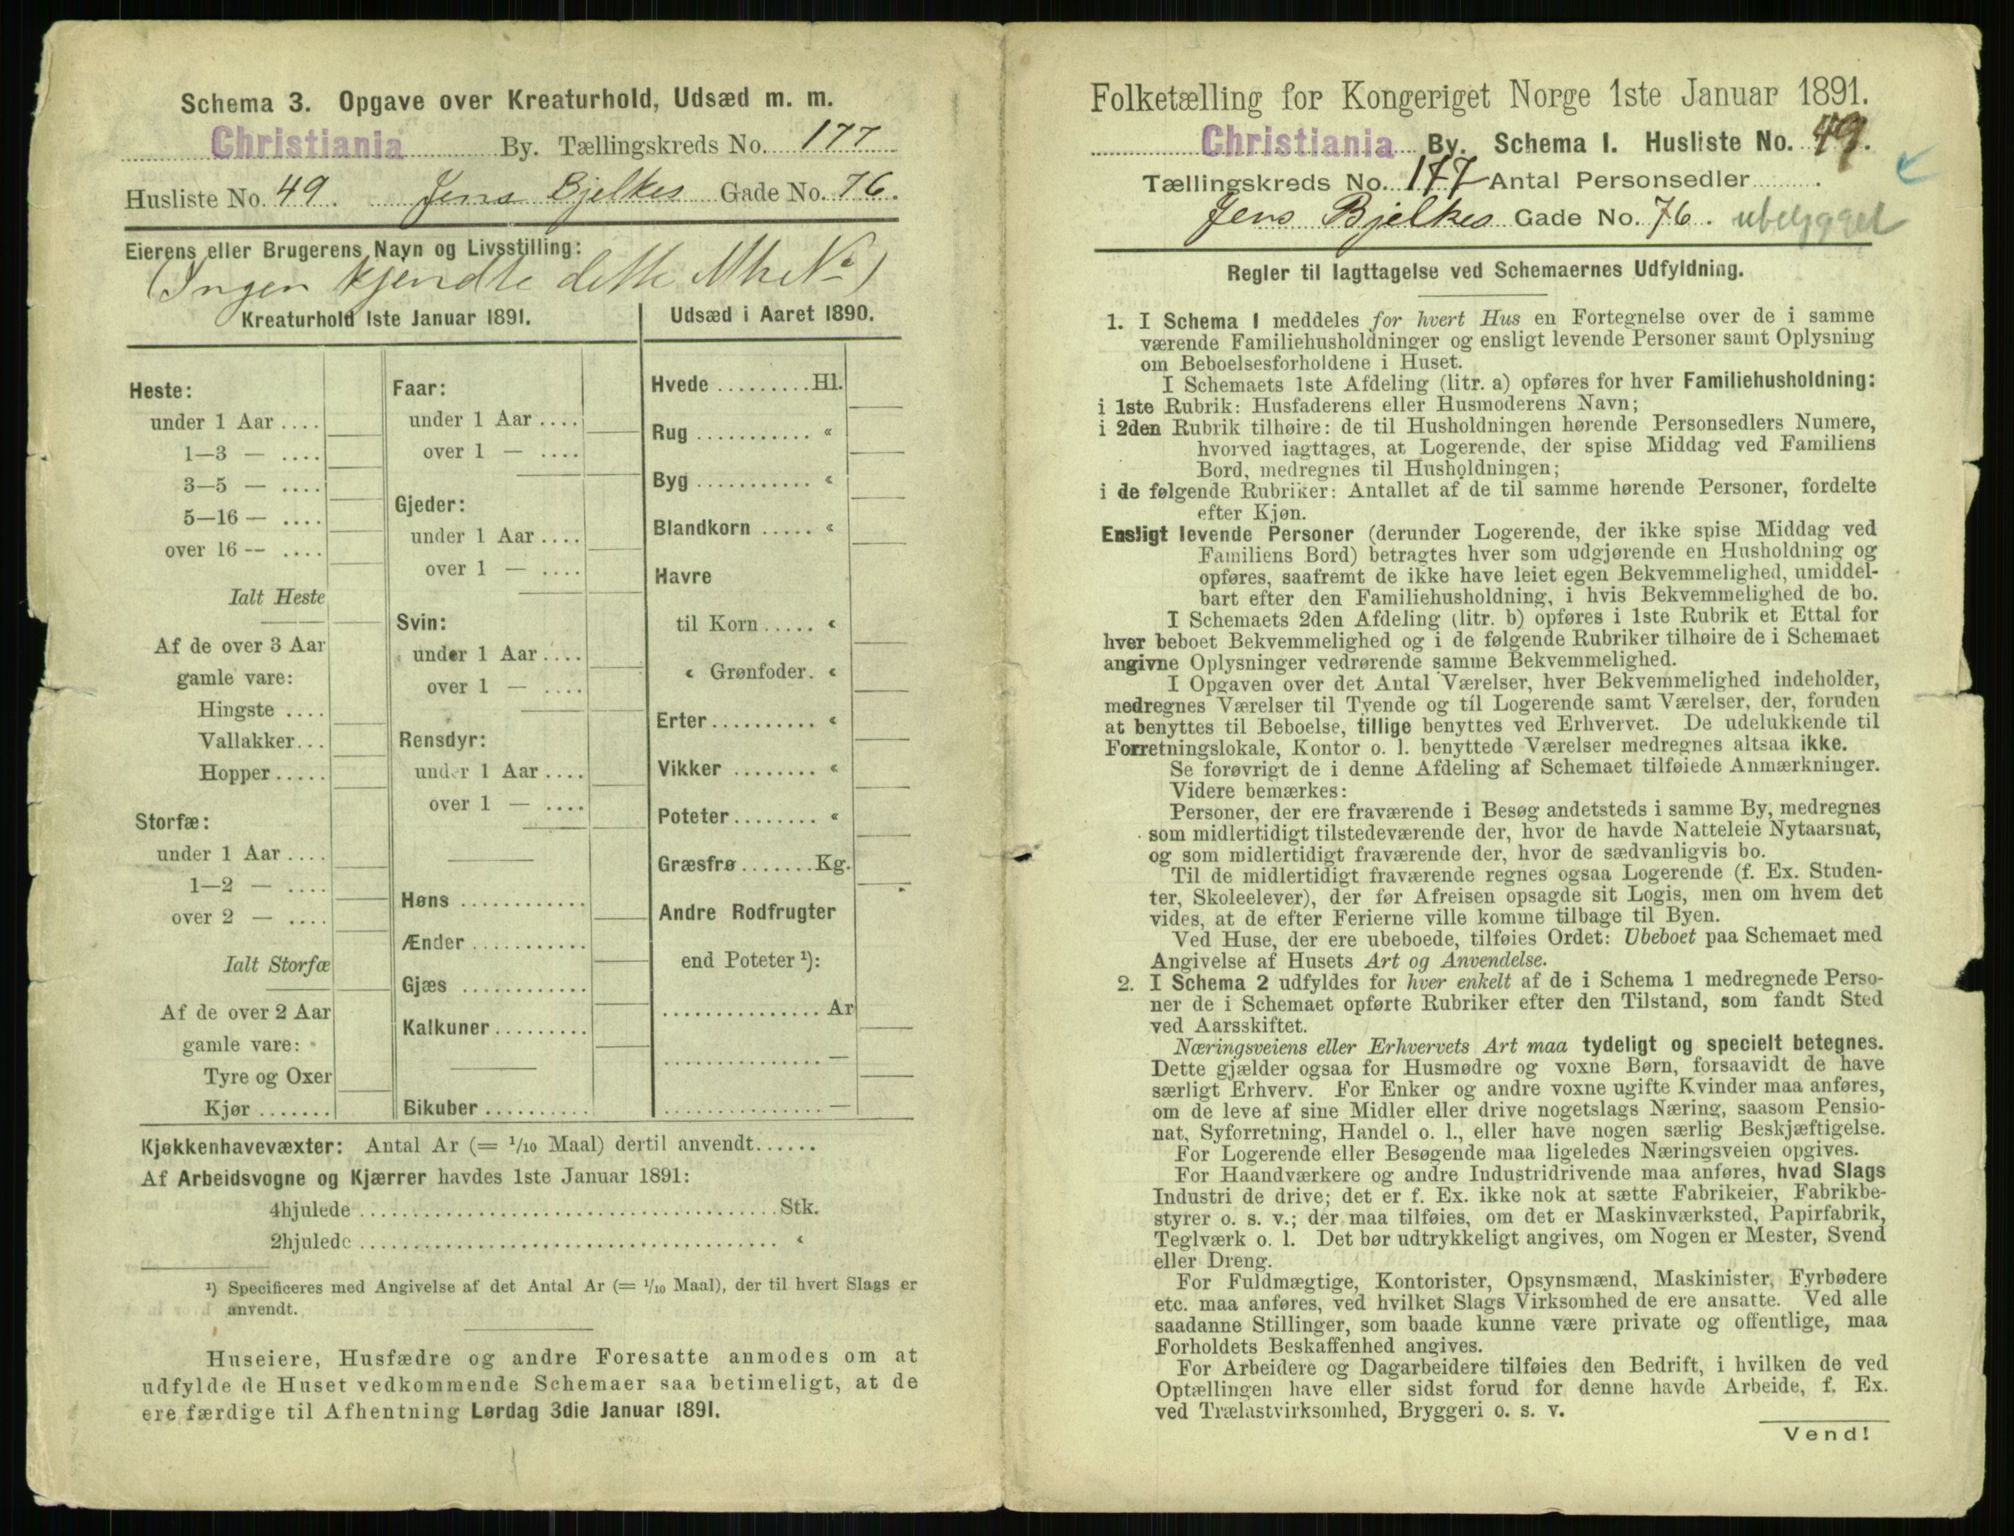 Schema 3. Opgave over Kreaturhold, Udsæd m. m.
Christiania By. Tællingskreds No. 177
Husliste No. 49. Jens Bjelkes Gade No. 76.
Eierens eller Brugerens Navn og Livsstilling:
(Ingen kjendte dette No)
Kreaturhold 1ste Januar 1891.
Heste:
under 1 Aar ....
1—3 — ....
3—5 — ....
5—16 — ....
over 16 — ....
Ialt Heste
Af de over 3 Aar
gamle vare:
Hingste ....
Vallakker...
Hopper .....
Storfæ:
under 1 Aar ....
1—2 — ....
over 2 — ....
Ialt Storfæ
Af de over 2 Aar
gamle vare:
Tyre og Oxer
Kjør .......
Faar:
under 1 Aar ....
over 1 — ....
Gjeder:
under 1 Aar ....
over 1 — ....
Svin:
under 1 Aar ....
over 1 — ....
Rensdyr:
under 1 Aar ....
over 1 — ....
Høns ............
Ænder ...........
Gjæs ............
Kalkuner.........
Bikuber ..........
Udsæd i Aaret 1890.
Hvede .........Hl.
Rug ........... «
Byg ........... «
Blandkorn ..... «
Havre
til Korn ..... «
« Grønfoder. «
Erter.......... «
Vikker ........ «
Poteter........ «
Græsfrø .......Kg.
Andre Rodfrugter
end Poteter ¹):
............... Ar
............... —
............... —
Kjøkkenhavevæxter: Antal Ar (= 1/10 Maal) dertil anvendt......
Af Arbeidsvogne og Kjærrer havdes 1ste Januar 1891:
4hjulede ........................................Stk.
2hjulede ........................................ «
¹) Specificeres med Angivelse af det Antal Ar (= 1/10 Maal), der til hvert Slags er
anvendt.
Huseiere, Husfædre og andre Foresatte anmodes om at
udfylde de Huset vedkommende Schemaer saa betimeligt, at de
ere færdige til Afhentning Lørdag 3die Januar 1891.
Folketælling for Kongeriget Norge 1ste Januar 1891.
Christiania By. Schema I. Husliste No. 49.
Tællingskreds No. 177 Antal Personsedler .
Jens Bjelkes Gade No. 76. ubebygget
Regler til Iagttagelse ved Schemaernes Udfyldning.
1. I Schema I meddeles for hvert Hus en Fortegnelse over de i samme
værende Familiehusholdninger og ensligt levende Personer samt Oplysning
om Beboelsesforholdene i Huset.
I Schemaets 1ste Afdeling (litr. a) opføres for hver Familiehusholdning:
i 1ste Rubrik: Husfaderens eller Husmoderens Navn;
i 2den Rubrik tilhøire: de til Husholdningen hørende Personsedlers Numere,
hvorved iagttages, at Logerende, der spise Middag ved Familiens
Bord, medregnes til Husholdningen;
i de følgende Rubriker: Antallet af de til samme hørende Personer, fordelte
efter Kjøn.
Ensligt levende Personer (derunder Logerende, der ikke spise Middag ved
Familiens Bord) betragtes hver som udgjørende en Husholdning og
opføres, saafremt de ikke have leiet egen Bekvemmelighed, umiddel-
bart efter den Familiehusholdning, i hvis Bekvemmelighed de bo.
I Schemaets 2den Afdeling (litr. b) opføres i 1ste Rubrik et Ettal for
hver beboet Bekvemmelighed og i de følgende Rubriker tilhøire de i Schemaet
angivne Oplysninger vedrørende samme Bekvemmelighed.
I Opgaven over det Antal Værelser, hver Bekvemmelighed indeholder,
medregnes Værelser til Tyende og til Logerende samt Værelser, der, foruden
at benyttes til Beboelse, tillige benyttes ved Erhvervet. De udelukkende til
Forretningslokale, Kontor o. l. benyttede Værelser medregnes altsaa ikke.
Se forøvrigt de i denne Afdeling af Schemaet tilføiede Anmærkninger.
Videre bemærkes:
Personer, der ere fraværende i Besøg andetsteds i samme By, medregnes
som midlertidigt tilstedeværende der, hvor de havde Natteleie Nytaarsnat,
og som midlertidigt fraværende der, hvor de sædvanligvis bo.
Til de midlertidigt fraværende regnes ogsaa Logerende (f. Ex. Studen-
ter, Skoleelever), der før Afreisen opsagde sit Logis, men om hvem det
vides, at de efter Ferierne ville komme tilbage til Byen.
Ved Huse, der ere ubeboede, tilføies Ordet: Ubeboet paa Schemaet med
Angivelse af Husets Art og Anvendelse.
2. I Schema 2 udfyldes for hver enkelt af de i Schema 1 medregnede Perso-
ner de i Schemaet opførte Rubriker efter den Tilstand, som fandt Sted
ved Aarsskiftet.
Næringsveiens eller Erhvervets Art maa tydeligt og specielt betegnes.
Dette gjælder ogsaa for Husmødre og voxne Børn, forsaavidt de have
særligt Erhverv. For Enker og andre voxne ugifte Kvinder maa anføres,
om de leve af sine Midler eller drive nogetslags Næring, saasom Pensio-
nat, Syforretning, Handel o. l., eller have nogen særlig Beskjæftigelse.
For Logerende eller Besøgende maa ligeledes Næringsveien opgives.
For Haandværkere og andre Industridrivende maa anføres, hvad Slags
Industri de drive; det er f. Ex. ikke nok at sætte Fabrikeier, Fabrikbe-
styrer o. s. v.; der maa tilføies, om det er Maskinværksted, Papirfabrik,
Teglværk o. l. Det bør udtrykkeligt angives, om Nogen er Mester, Svend
eller Dreng.
For Fuldmægtige, Kontorister, Opsynsmænd, Maskinister, Fyrbødere
etc. maa anføres, ved hvilket Slags Virksomhed de ere ansatte. Ved alle
saadanne Stillinger, som baade kunne være private og offentlige, maa
Forholdets Beskaffenhed angives.
For Arbeidere og Dagarbeidere tilføies den Bedrift, i hvilken de ved
Optællingen have eller sidst forud for denne havde Arbeide, f. Ex.
ved Trælastvirksomhed, Bryggeri o. s. v.
Vend!